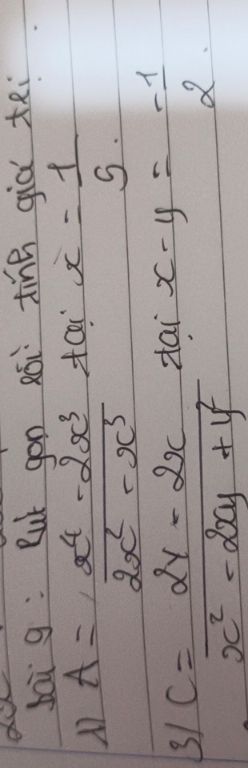 Bài 9: Rút gọn rồi tính giá trị.
1) A = x⁴ - 2x³ / 2x² - x³ tại x = -1 / 5.
3) C = 2y - 2x / x² - 2xy + y² tại x - y = -1 / 2.